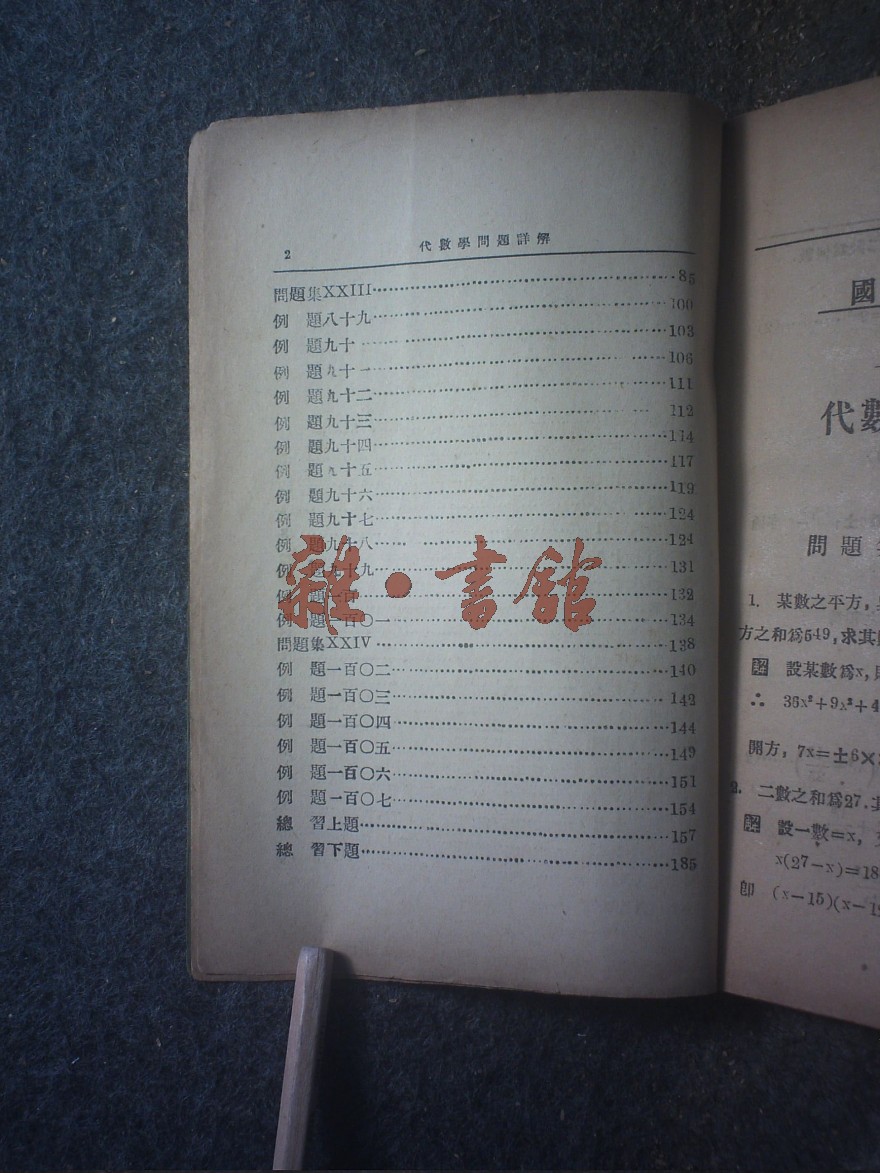 2 代數學問題詳解
問題集XXIII……85
例 題八十九……100
例 題九十……103
例 題九十一……106
例 題九十二……111
例 題九十三……112
例 題九十四……114
例 題九十五……117
例 題九十六……119
例 題九十七……124
例 題九十八……124
例 題九十九……131
例 題一百……132
例 題一百〇一……134
問題集XXIV……138
例 題一百〇二……140
例 題一百〇三……142
例 題一百〇四……144
例 題一百〇五……149
例 題一百〇六……151
例 題一百〇七……154
總 習上題……157
總 習下題……185
雜·書館
國
代數
問題
1. 某數之平方,
方之和為549,求其
解 設某數為x,
∴ 36x²+9x²+4
開方, 7x=±6×
2. 二數之和為27.其
解 設一數=x,
x(27-x)=18
即 (x-15)(x-1